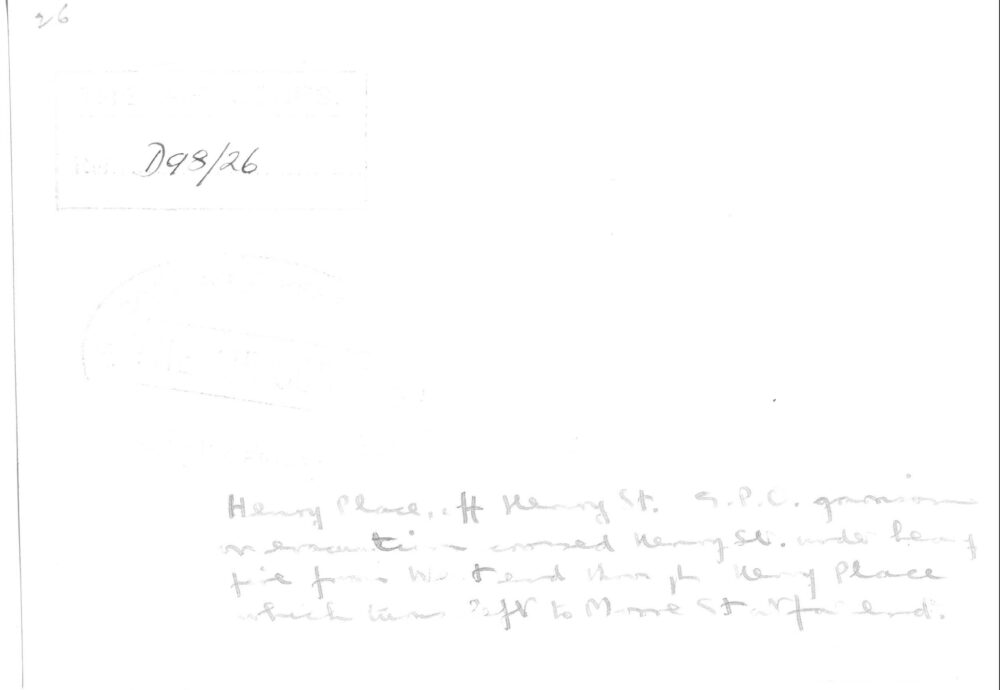 26
D98/26
Henry Place, off Henry St. G.P.O. garrison
on evacuation crossed Henry St. under heavy
fire from West end through Henry Place
which turns left to Moore St at far end.